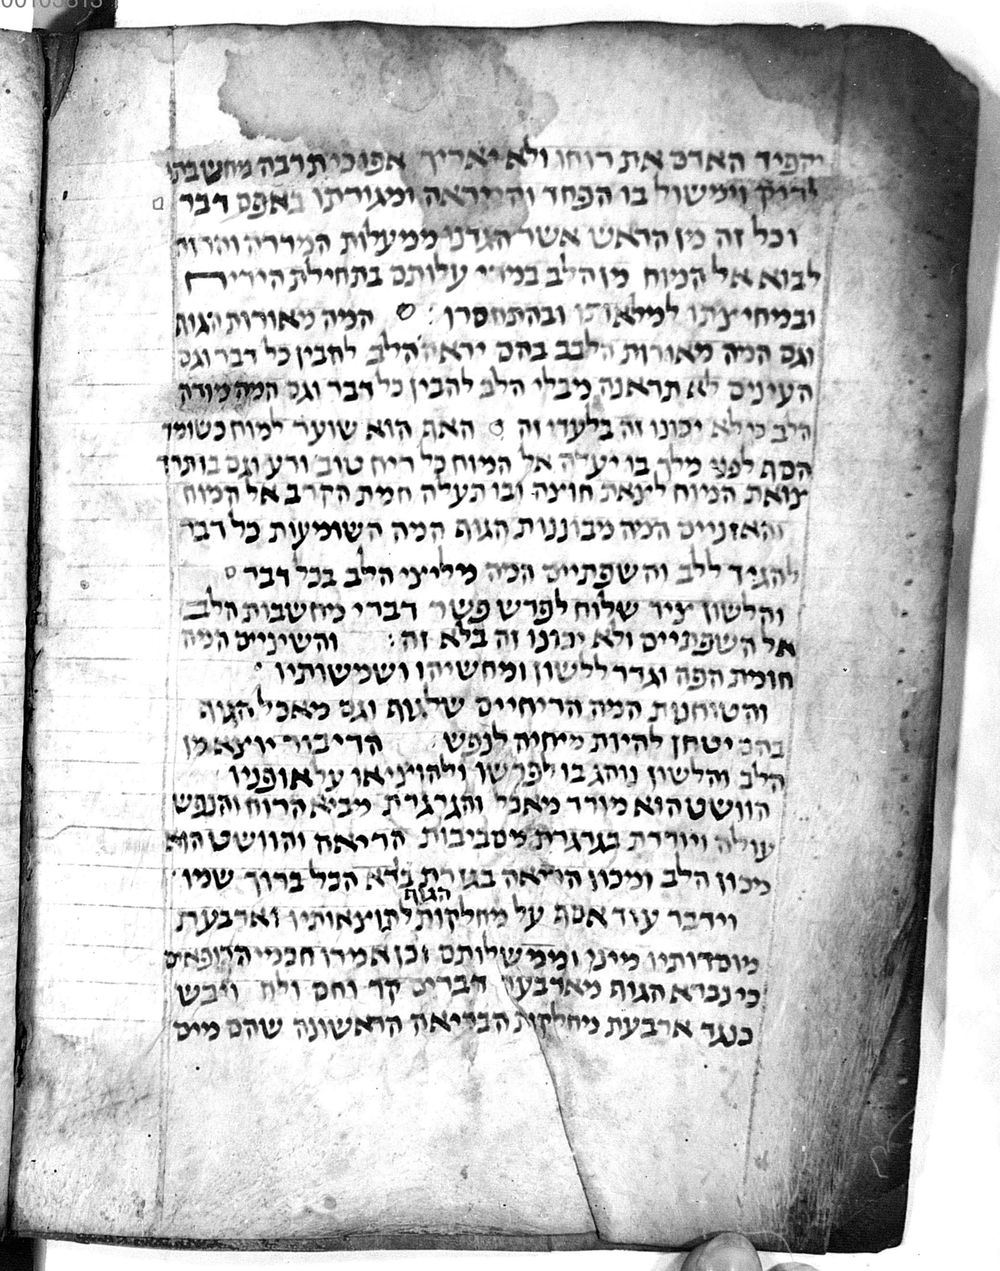 00105813
יהפיד האדם את רוחו ולא יאריך אפו כי תרבה מחשבתו
לדוק וימשול בו הפחד והיראה ומגורתו באפס דבר
וכל זה מן הראש אשר הגדנו ממעלות המדרה והרוח
לבוא אל המוח מן הלב במדי עלותם בתחילת הירח
ובמחיצתו למלאותו ובהתחסרו : המה מאורות הגוף
וגם המה מאורות הלבב בהם יראה הלב להבין כל דבר וגם
העינים לא תראנה מבלי הלב להבין כל דבר וגם המה מודה
הלב כי לא יכונו זה בלעדי זה האף הוא שוער למוח כשומר
הסף לפני מלך בו יעלה אל המוח כל ריח טוב ורע וגם בו תרד
צואת המוח לצאת חוצה ובו תעלה חמת הקרב אל המוח
והאזניים המה מבוננות הגוף המה השומעות כל דבר
להגיד ללב והשפתיים המה מליצי הלב בכל דבר
והלשון ציר שלוח לפרש פשר דברי מחשבות הלב
אל השפתיים ולא יכונו זה בלא זה : והשיניים המה
חומת הפה וגדר ללשון ומחשיהו ושמשותיו
והטוחנות המה הריחיים של גוף וגם מאכל הגוף
בהם יטחן להיות מיחיה לנפש הדיבור יוצא מן
הלב והלשון נוהג בו לפרשו ולהוציאו על אופניו
הוושט הוא מוריד מאכל והגרגרת מביא הרוח והנפש
עולה ויורדת בגרגרת מסביבות הריאה והוושט הוא
מכון הלב ומכון הריאה בגזרת בלא הכל ברוך שמו
הגוף
וידבר עוד אסף על מחלקות לתוצאותיו וארבעת
מוסדותיו מיניו וממשלותם וכן אמרו חכמי הרופאים
כי נברא הגוף מארבעה דברים קר וחם ולח ויבש
כנגד ארבעת מחלקות הבריאה הראשונה שהם מים